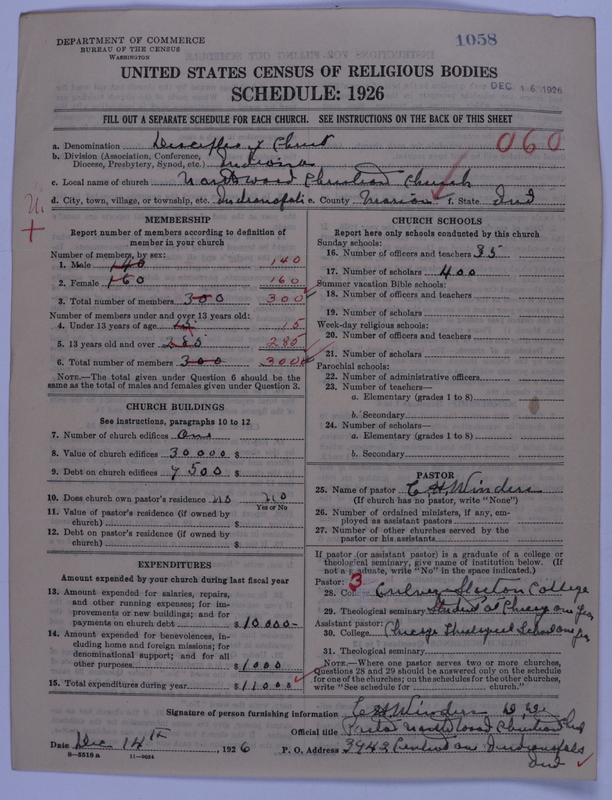 DEPARTMENT OF COMMERCE
BUREAU OF THE CENSUS
WASHINGTON
1058
UNITED STATES CENSUS OF RELIGIOUS BODIES
SCHEDULE: 1926
DEC 16 1926
FILL OUT A SEPARATE SCHEDULE FOR EACH CHURCH. SEE INSTRUCTIONS ON THE BACK OF THIS SHEET
060
a. Denomination Disciples of Christ
b. Division (Association, Conference, Diocese, Presbytery, Synod, etc.) Indiana
c. Local name of church Northwood Christian Church
d. City, town, village, or township, etc. Indianapolis e. County Marion f. State Ind
MEMBERSHIP
Report number of members according to definition of
member in your church
Number of members, by sex:
1. Male 140 140
2. Female 160 160
3. Total number of members 300 300
Number of members under and over 13 years old:
4. Under 13 years of age 15 15
5. 13 years old and over 285 285
6. Total number of members 300 300
NOTE.—The total given under Question 6 should be the
same as the total of males and females given under Question 3.
CHURCH BUILDINGS
See instructions, paragraphs 10 to 12
7. Number of church edifices One
8. Value of church edifices 30000 $
9. Debt on church edifices 7500 $
10. Does church own pastor's residence no no
Yes or No
11. Value of pastor's residence (if owned by
church) $
12. Debt on pastor's residence (if owned by
church) $
EXPENDITURES
Amount expended by your church during last fiscal year
13. Amount expended for salaries, repairs,
and other running expenses; for im-
provements or new buildings; and for
payments on church debt $ 10000-
14. Amount expended for benevolences, in-
cluding home and foreign missions; for
denominational support; and for all
other purposes $ 1000
15. Total expenditures during year $ 11000
CHURCH SCHOOLS
Report here only schools conducted by this church
Sunday schools:
16. Number of officers and teachers 35
17. Number of scholars 400
Summer vacation Bible schools:
18. Number of officers and teachers
19. Number of scholars
Week-day religious schools:
20. Number of officers and teachers
21. Number of scholars
Parochial schools:
22. Number of administrative officers
23. Number of teachers—
a. Elementary (grades 1 to 8)
b. Secondary
24. Number of scholars—
a. Elementary (grades 1 to 8)
b. Secondary
PASTOR
25. Name of pastor C H Winders
(If church has no pastor, write "None")
26. Number of ordained ministers, if any, em-
ployed as assistant pastors
27. Number of other churches served by the
pastor or his assistants
If pastor (or assistant pastor) is a graduate of a college or
theological seminary, give name of institution below. (If
not a graduate, write "No" in the space indicated.)
Pastor: 3
28. College Culver Stockton College
29. Theological seminary Student at Chicago one year
Assistant pastor:
30. College Chicago Theological School one year
31. Theological seminary
NOTE.—Where one pastor serves two or more churches,
Questions 28 and 29 should be answered only on the schedule
for one of the churches; on the schedules for the other churches,
write "See schedule for church."
Signature of person furnishing information C H Winders
Official title Pastor Northwood Christian Church
Date Dec 14th, 1926 P. O. Address 3942 Central ave Indianapolis
Ind
8—5518 a 11—9024